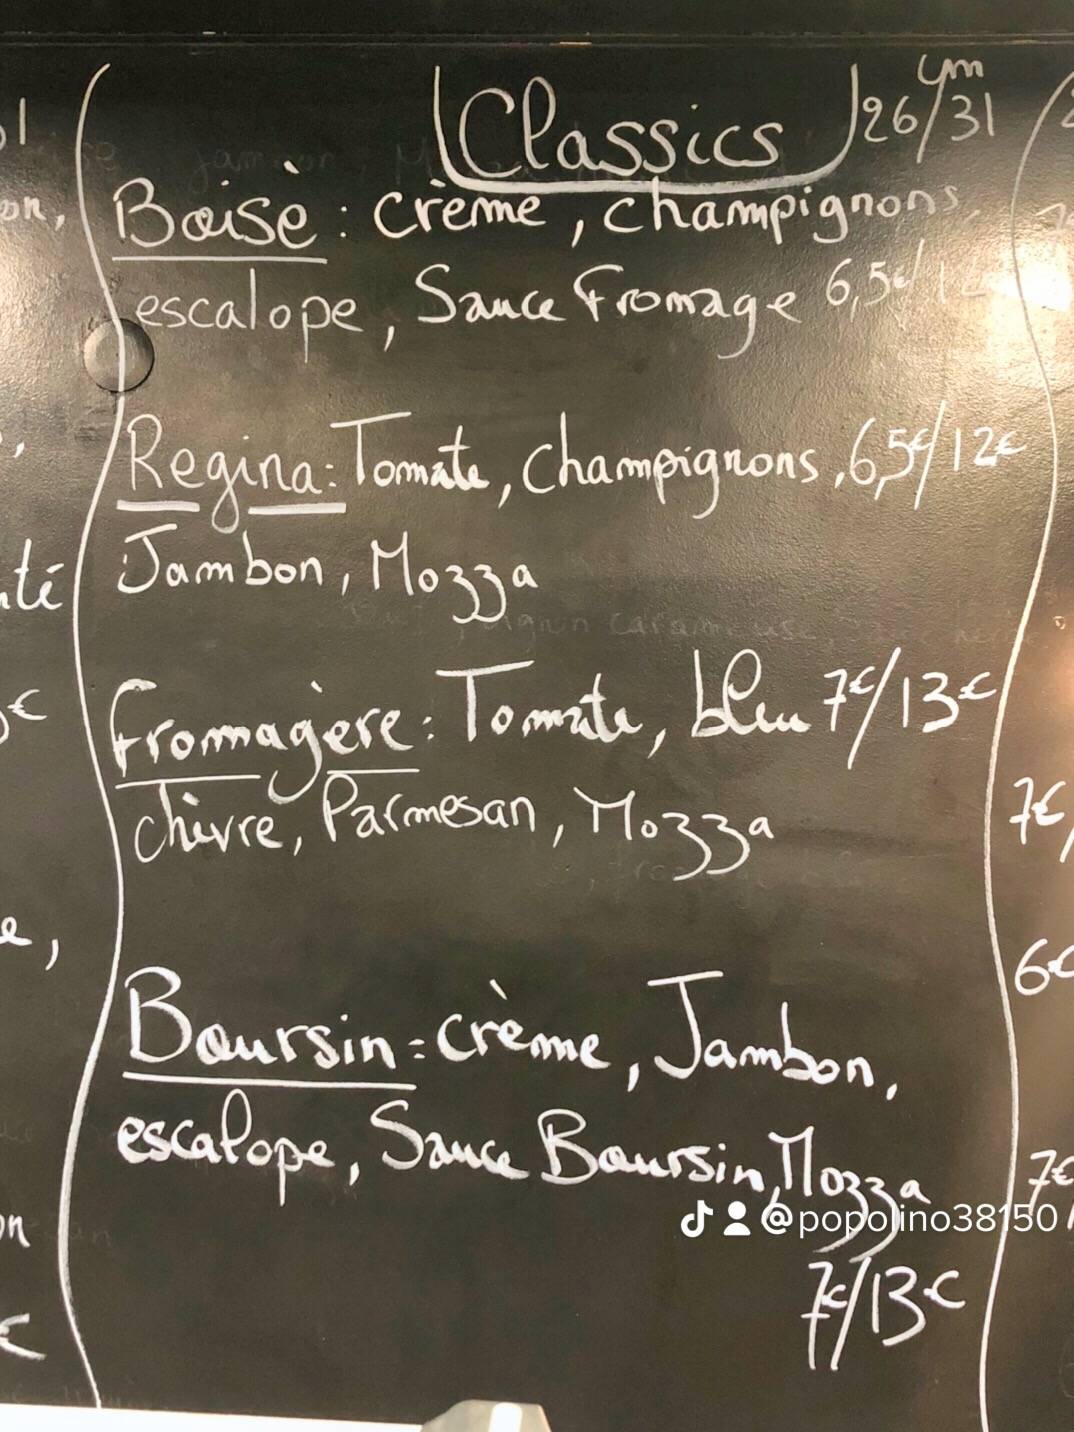 Classics 26/31 cm
Boisè : crème, champignons
escalope, Sauce Fromage 6,5€/
Regina : Tomate, champignons, 6,5€/12€
Jambon, Mozza
Fromagère : Tomate, bleu 7€/13€
chèvre, Parmesan, Mozza
Boursin : crème, Jambon,
escalope, Sauce Boursin, Mozza
@popolino38150
7€/13€
7€/
7€